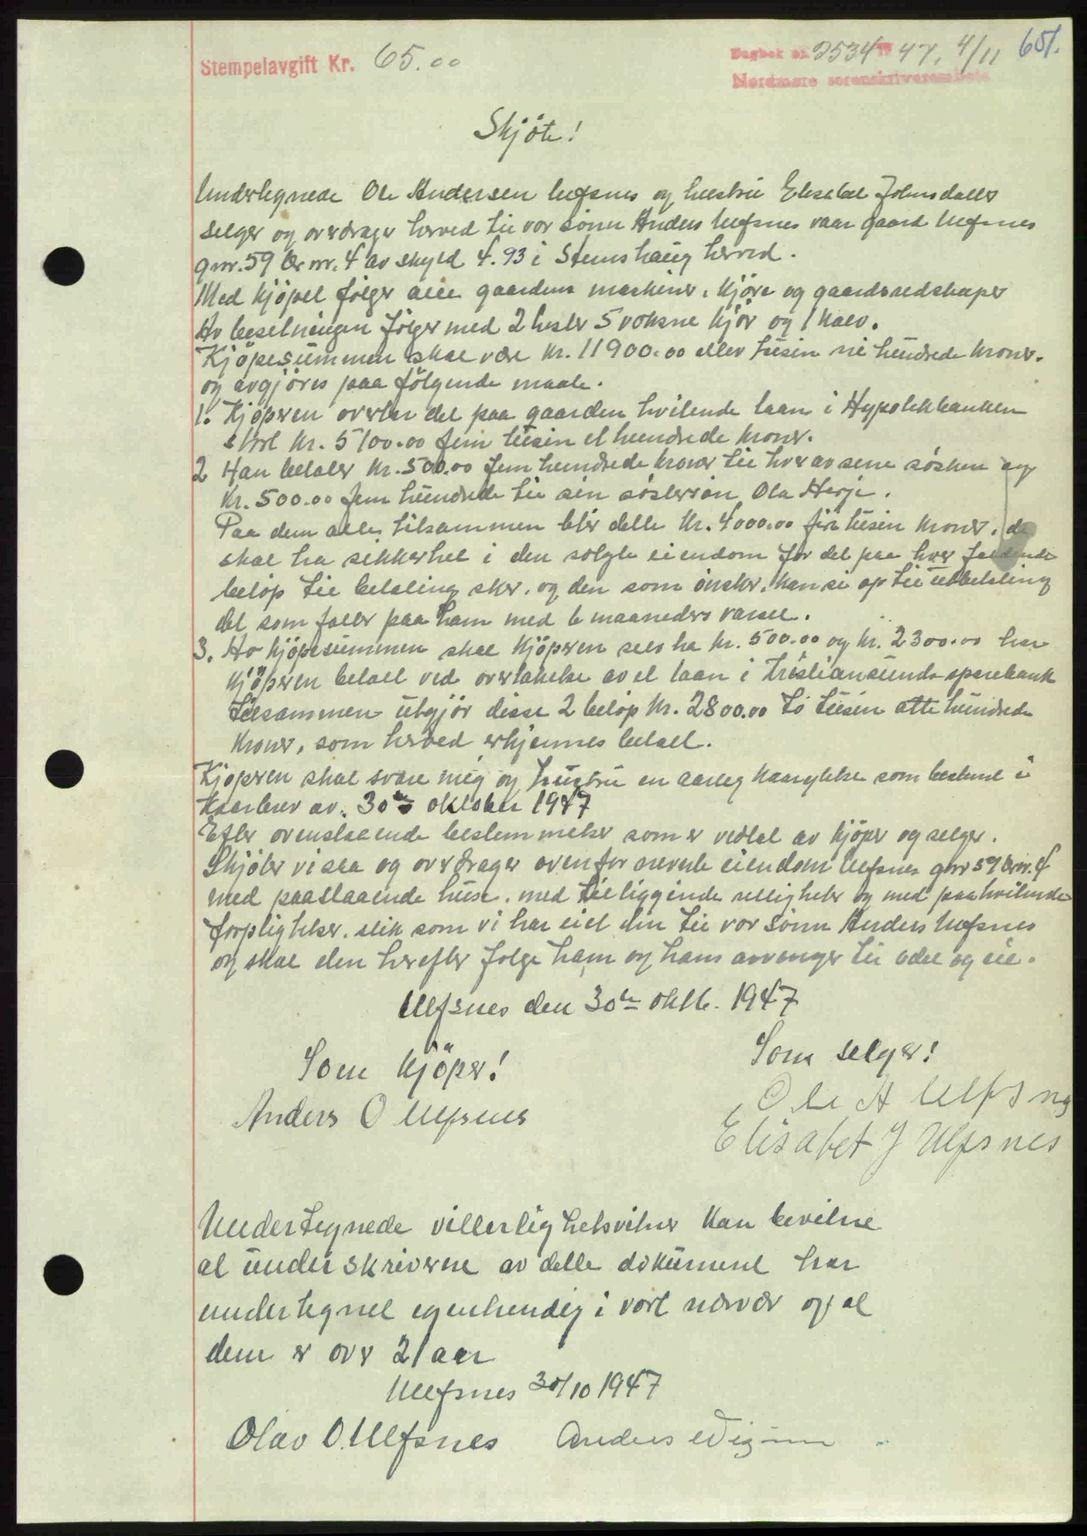 Stempelavgift Kr. 65.00
Dagbok nr. 2534 19 47, 4/11 651.
Nordmøre sorenskriverembete
Skjöte!
Undertegnede Ole Andersen Ulfsnes og hustru Elisabet Johnsdatter
selger og overdrager herved til vor sönn Anders Ulfsnes vaar gaard Ulfsnes
gnr. 59 br nr. 4 av skyld 4.93 i Stemshaug herred.
Med kjöpet fölger alle gaardens maskiner, kjöre og gaardsredskaper
Av besetningen fölger med 2 hester 5 voksne kjör og 1 kalv.
Kjöpesummen skal være kr. 11900.00 ellev tusin ni hundrede kroner.
og avgjöres paa fölgende maate.
1. Kjöperen overtar det paa gaarden hvilende laan i Hypotekbanken
stort kr. 5100.00 fem tusin et hundrede kroner.
2 Han betaler kr. 500.00 fem hundrede kroner til hver av sine sösken og
kr. 500.00 fem hundrede til sin söstersön Ola Herje.
Paa dem alle tilsammen blir dette kr. 4000.00 fire tusin kroner, de
skal ha sikkerhet i den solgte eiendom for det paa hver faldende
belöp til betaling sker, og den som önsker, kan si op til utbetaling
det som faller paa ham med 6 maaneders varsel.
3. Av kjöpesummen skal kjöperen selv ha kr. 500.00 og kr. 2300.00 har
kjöperen betalt ved overtakelse av et laan i Kristiansunds sparebank
tilsammen utgjör disse 2 belöp kr. 2800.00 to tusin otte hundrede
kroner, som herved erkjennes betalt.
Kjöperen skal svare mig og hustru en aarleg kaarytelse som bestemt i
Kaarbrev av. 30te oktober 1947
Efter ovenstaaende bestemmelser som er vedtat av kjöper og selger.
Skjöter vi saa og overdrager ovenfor nevnte eiendom Ulfsnes gnr 59 brnr. 4
med paastaaende huse, med tilliggende rettigheter og med paahvilende
forpligtelser, slik som vi har eiet den til vor sönn Anders Ulfsnes
og skal den herefter folge ham og hans arvinger til odel og eie.
Ulfsnes den 30te oktb. 1947
Som kjöper! Som selger!
Anders O Ulfsnes Ole A Ulfsnes
Elisabet J Ulfsnes
Undertegnede vitterlighetsvitner kan bevitne
at underskriverne av dette dokument har
undertegnet egenhendig i vort nærvær og at
dem er over 21 aar
Ulfsnes 30/10 1947
Olav O. Ulfsnes Anders